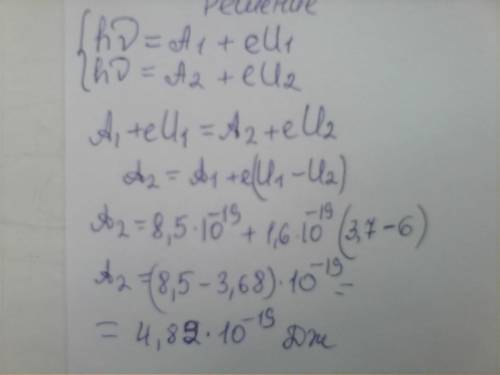 Решение
hν = A₁ + eU₁
hν = A₂ + eU₂
A₁ + eU₁ = A₂ + eU₂
A₂ = A₁ + e(U₁ − U₂)
A₂ = 8,5·10⁻¹⁹ + 1,6·10⁻¹⁹ (3,7 − 6)
A₂ = (8,5 − 3,68)·10⁻¹⁹ =
= 4,82·10⁻¹⁹ Дж